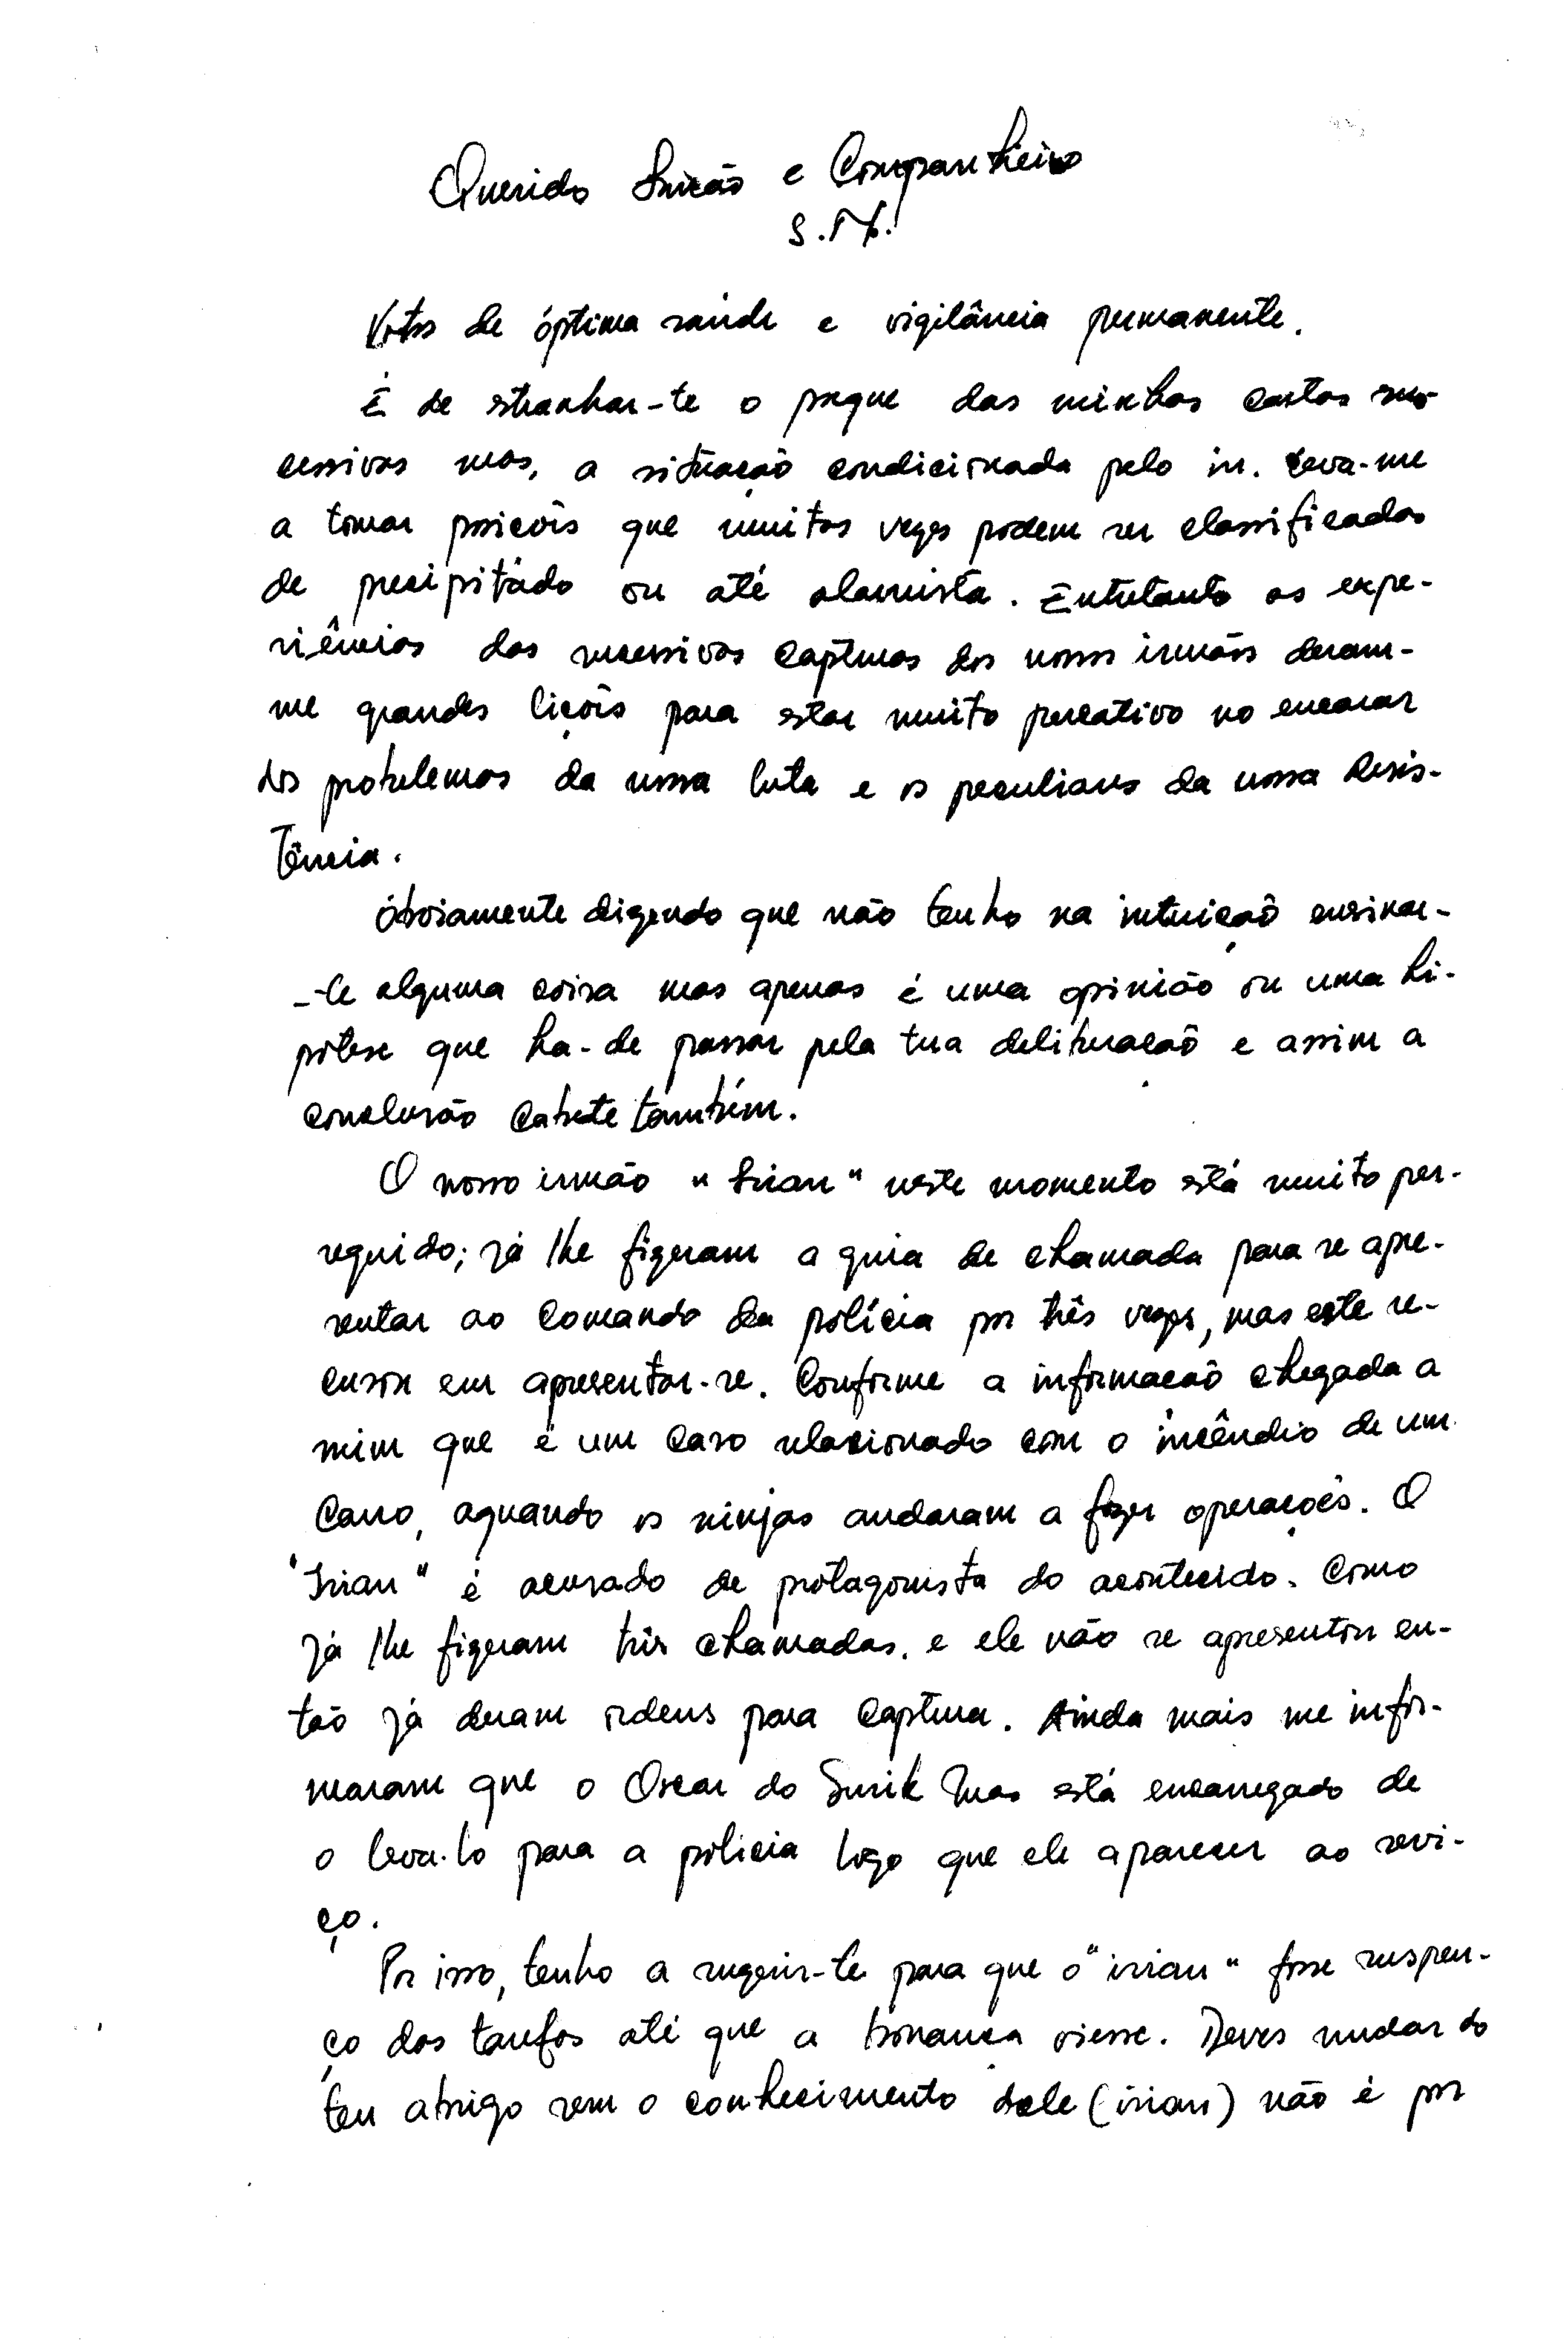 Querido Irmão e Companheiro
Votos de óptima saúde e vigilância permanente.
É de estranhar-te o porque das minhas cartas su-
cessivas mas, a situação condicionada pelo in. leva-me
a tomar posições que muitas vezes podem ser classificadas
de precipitado ou até alarmista. Entretanto as expe-
riências das sucessivas capturas dos nossos irmãos deram-
me grandes lições para estar muito no encarar
dos problemas da nossa luta e os peculiares da nossa Resis-
tência.
Obviamente dizendo que não tenho na intuição ensinar-
-te alguma coisa mas apenas é uma opinião ou uma hi-
pótese que ha-de passar pela tua deliberação e assim a
conclusão cabe-te também.
O nosso irmão "Irian" neste momento está muito per-
seguido; já lhe fizeram a guia de chamada para se apre-
sentar ao Comando da polícia por três vezes, mas este re-
cusou em apresentar-se. Conforme a informação chegada a
mim que é um caso relacionado com o incêndio de um
Carro, aquando os ninjas andaram a fazer operações. O
"Irian" é acusado de protagonista do acontecido. Como
já lhe fizeram três chamadas, e ele não se apresentou en-
tão já deram ordens para captura. Ainda mais me infor-
maram que o Oscar do está encarregado de
o leva-lo para a policia logo que ele aparecer ao servi-
ço.
Por isso, tenho a sugerir-te para que o "irian" fosse suspen-
ço das tarefas até que a bonança viesse. Deves mudar do
teu abrigo sem o conhecimento dele (irian) não é por